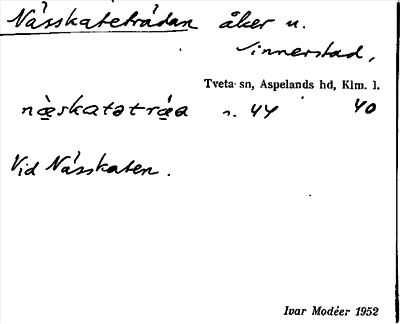 Nässkateträdan åker u.
Sinnerstad,
Tveta sn, Aspelands hd, Klm. l.
næ̀skatətræ̀a n. 44 40
Vid Nässkaten.
Ivar Modéer 1952